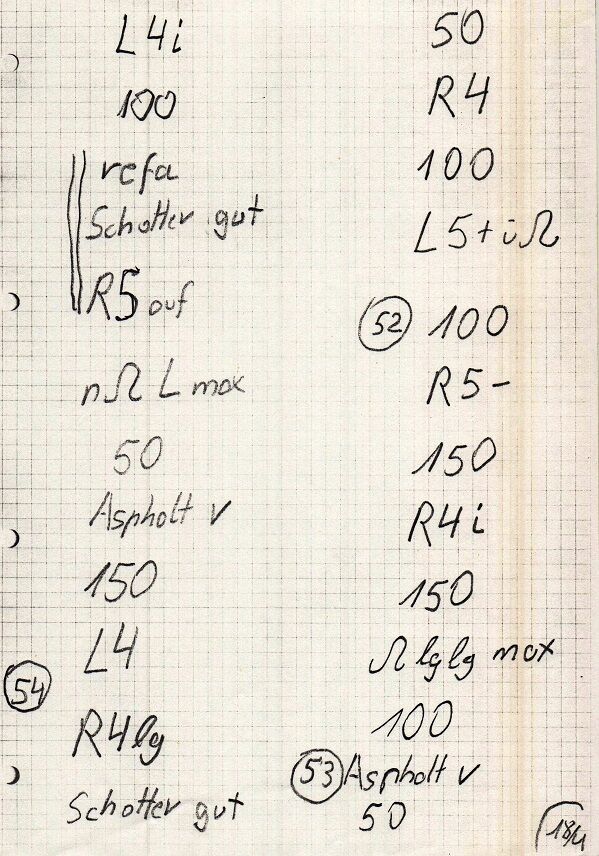 L4i
100
refa
Schotter gut
R5 auf
n Ω L max
50
Asphalt v
150
L4
54
R4 lg
Schotter gut
50
R4
100
L5+ü Ω
52 100
R5-
150
R4i
150
Ω lg lg max
100
53 Asphalt v
50
18/4